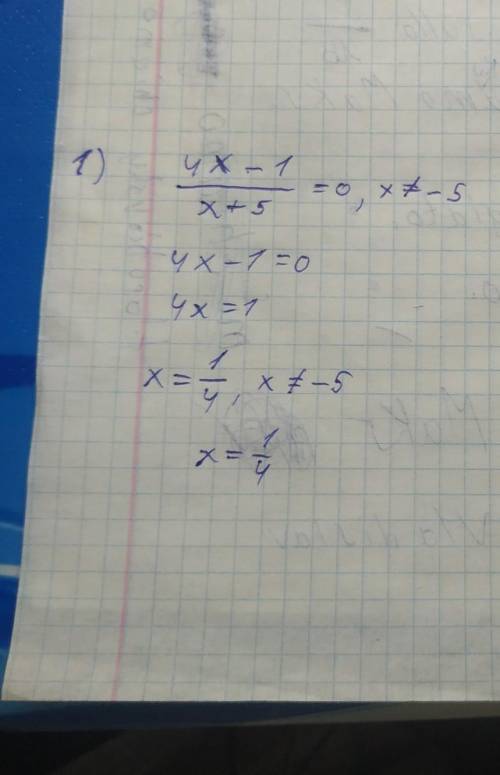 1)
4x - 1
x + 5
= 0, x ≠ -5
4x - 1 = 0
4x = 1
x = 1/4, x ≠ -5
x = 1/4